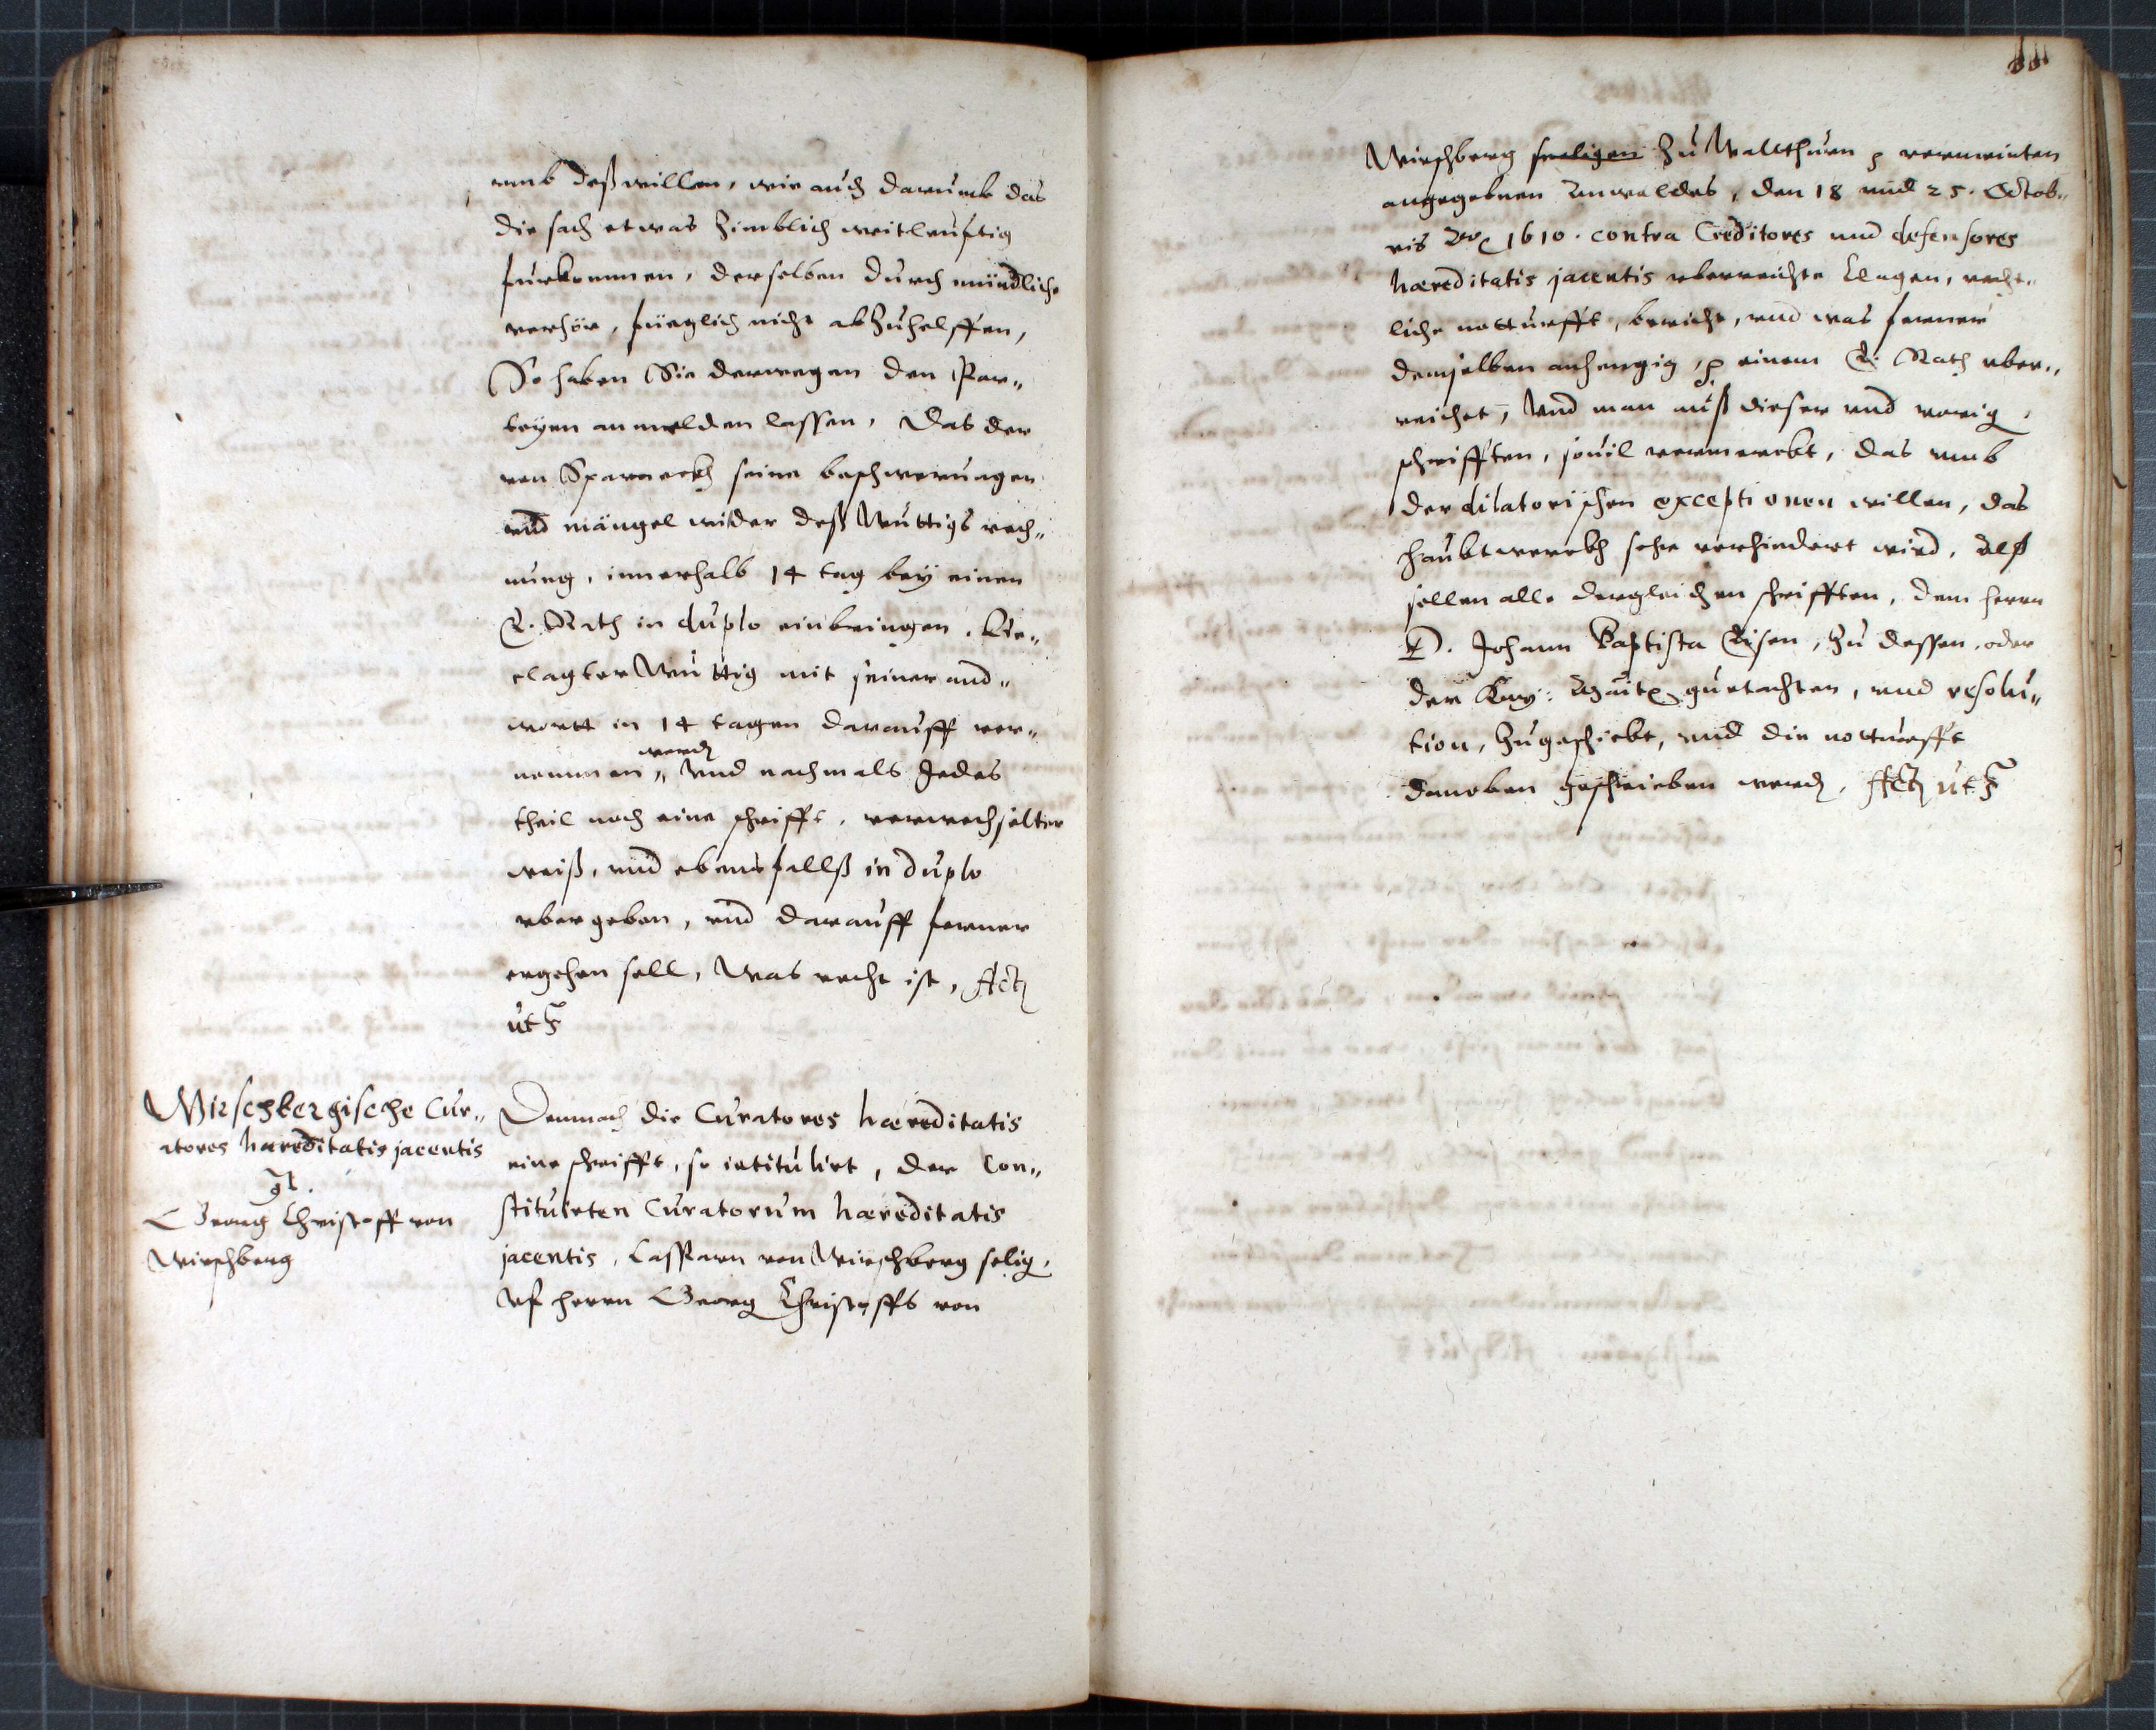 vmb deß willen, wie auch darumb das
die sach etwas zimblich weitleuftig
fürkommen, derselben durch mündliche
verhör, füeglich nicht abzuhelffen,
So haben Sie derwegen den Par„
teyen anmelden lassen, Das der
von Sparneckh seine beschwerungen
vnd mängel wider deß Wuttigs rech„
nung, innerhalb 14 tag bey einen
E. Rath in duplo einbringen, be„
clagter Wuttig mit seiner and„
wortt in 14 tagen darauff ver„
werdn
nommen„ Vnd nachmals Jedes
theil noch eine schrifft, verwechselter
weiß, vnd ebensfallß in duplo
vbergeben, vnd darauff ferner
ergehen soll, was recht ist, Act
ut s
Wirschbergische Cur„
atores haereditatis jacentis
Georg Christoff von
Wirschberg
Demnach die Curatores haereditatis
eine schrifft, so intitulirt, der Con„
stituirten Curatorum haereditatis
jacentis, Casparn von Wirschberg selig,
Vf herrn Georg Christoffs von
Wirschberg seeligen zu Wallthurn p vermeinten
angegebnen Anwaldes, den 18 vnd 25. Octob„
ris 1610. contra Creditores vnd defensores
haereditatis jacentis vberreichte Clagen, recht„
liche notturfft, bericht, vnd was ferner
demselben anhengig, p einem E. Rath vber„
reichet, Vnd man auß dieser vnd vorig,
schrifften, souil vermerckt, das vmb
der dilatorischen exceptionen willen, das
haubtwerckh sehr verhindert wird, Alß
sollen alle dergleichen schrifften, dem herrn
D. Johann Baptista Eisen, zu dessen, oder
der Kay: gutachten, vnd resolu„
tion, zugeschickt, vnd die notturfft
daneben geschrieben werdn, Act ut s